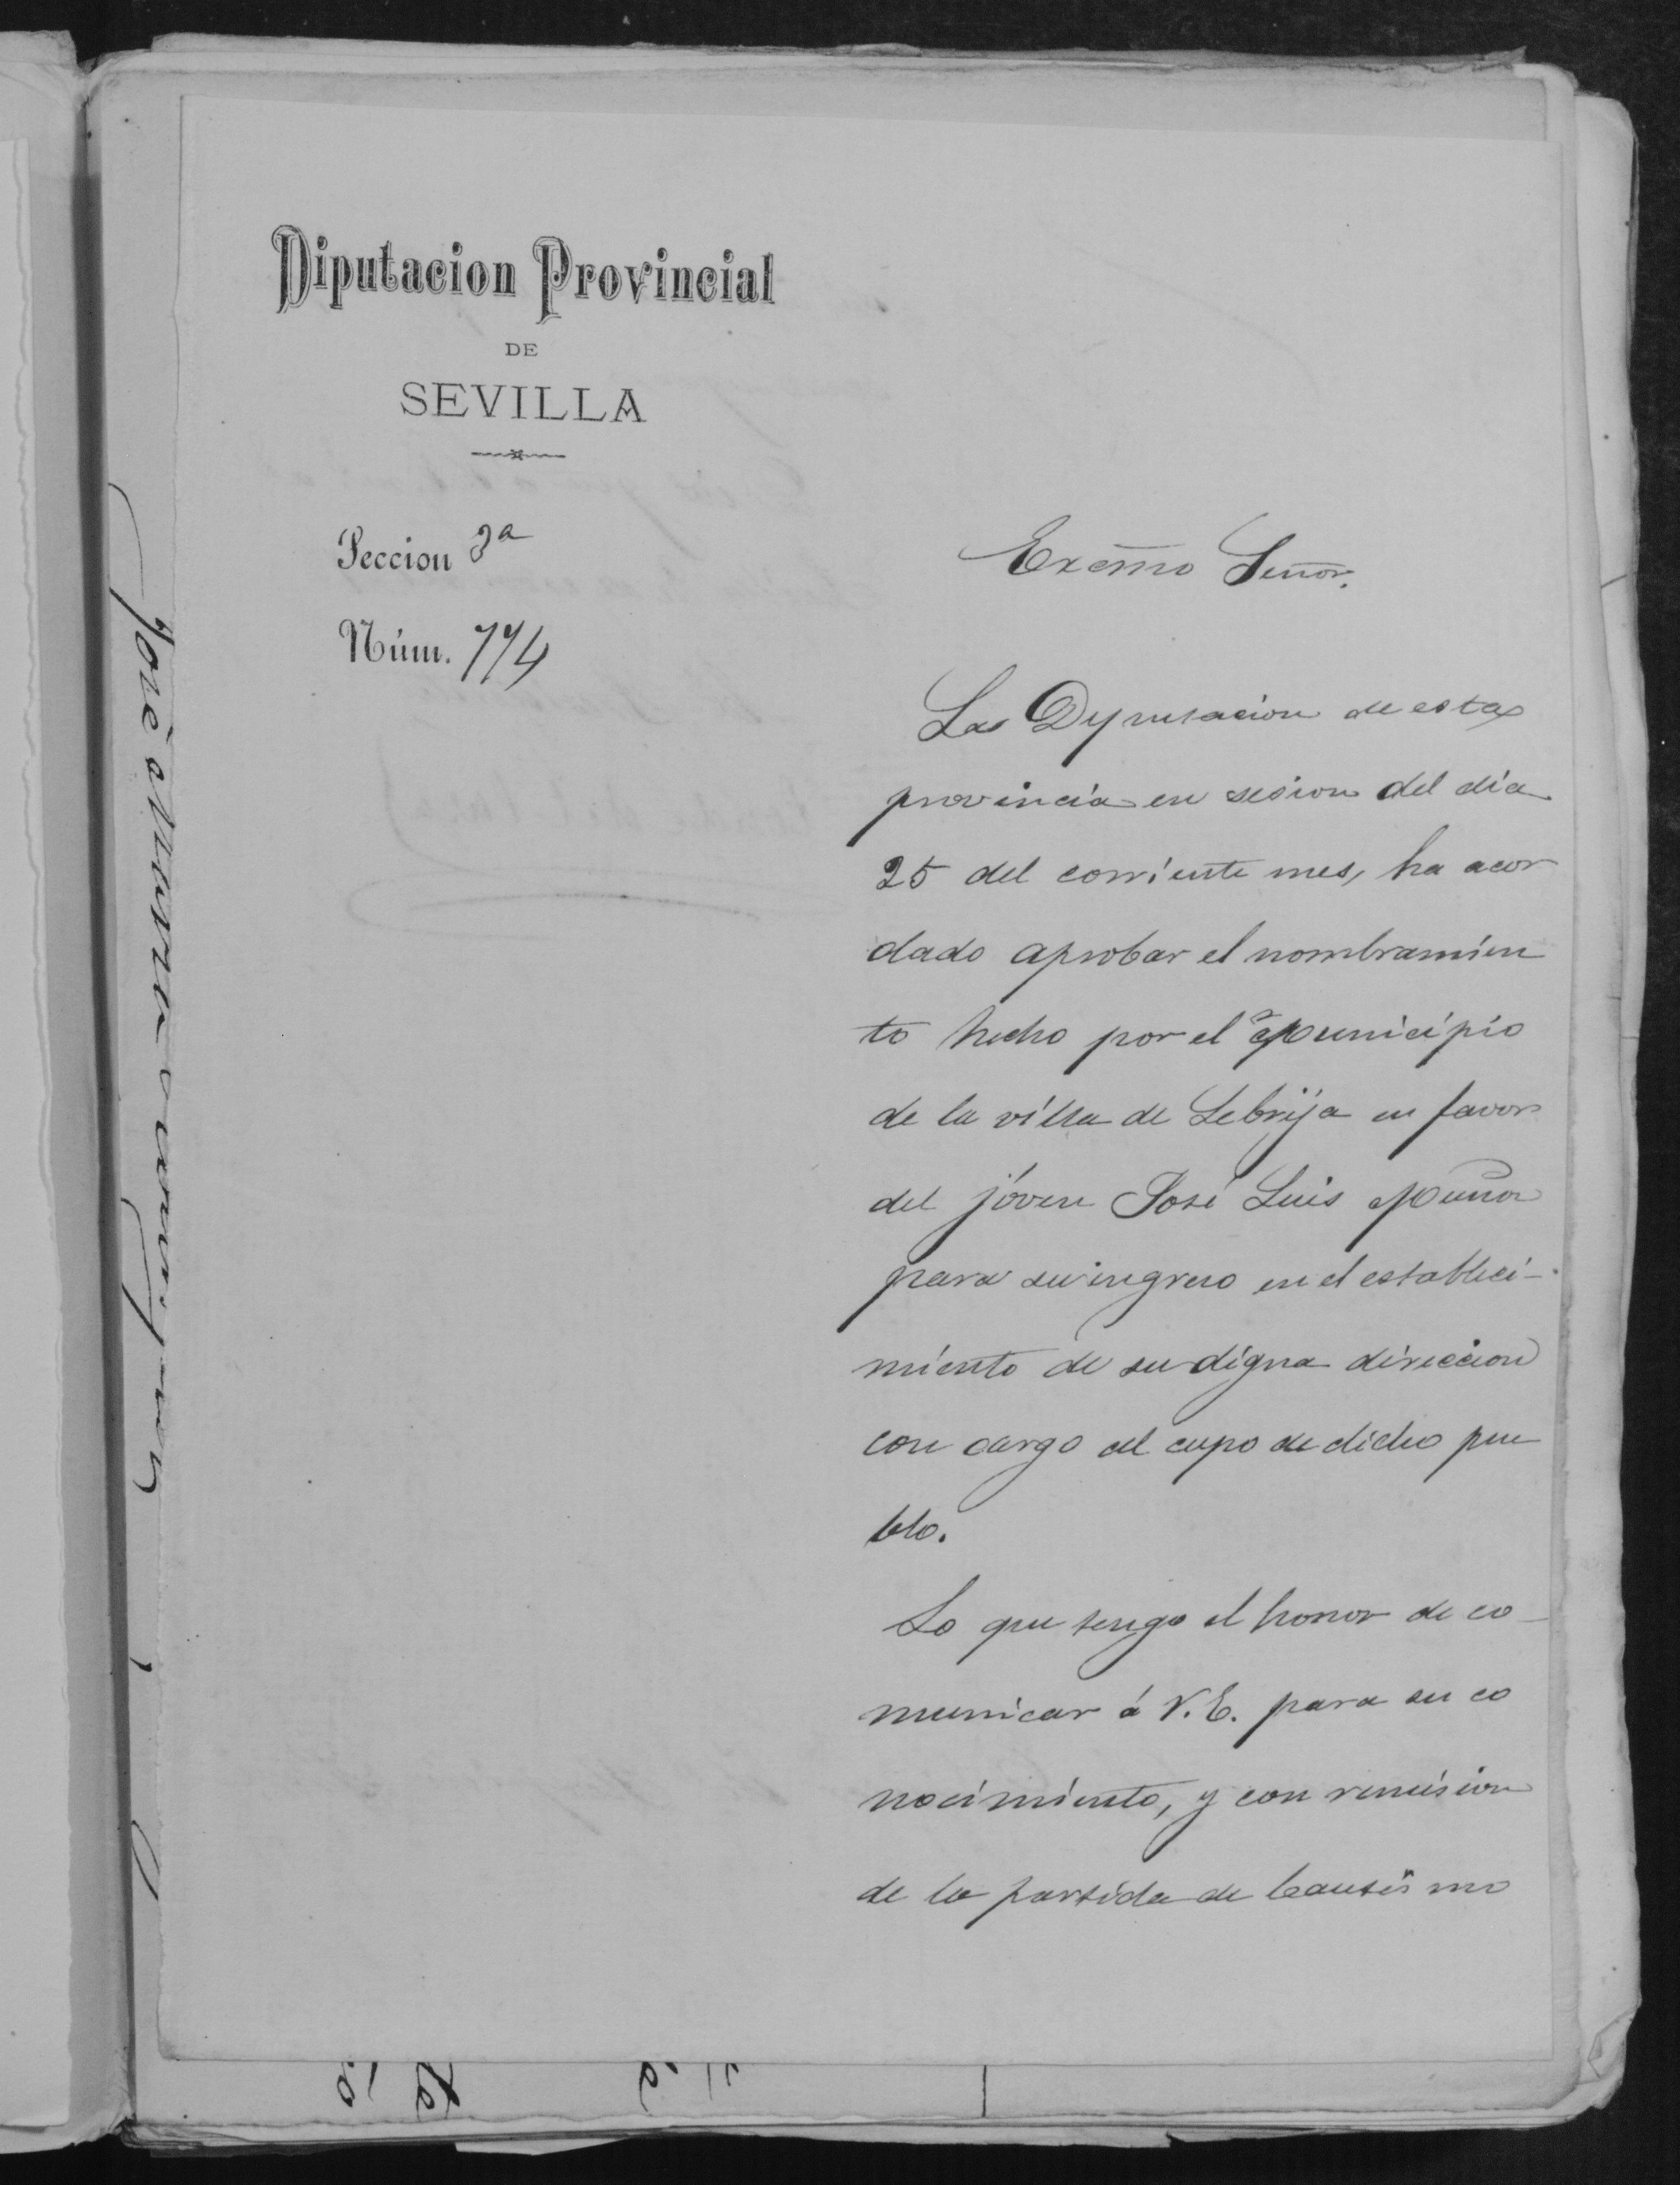 Diputacion Provincial
DE
SEVILLA
Seccion 3ª
Núm. 774
Excmo Señor.
La Diputacion de esta
provincia en sesion del dia
25 del corriente mes, ha acor
dado aprobar el nombramien
to hecho por el Municipio
de la villa de Lebrija en favor
del jóven José Luis Muñoz
para su ingreso en el estableci-
miento de su digna direccion
con cargo al cupo de dicho pue
blo.
Lo que tengo el honor de co-
municar á V.E. para su co
nocimiento, y con remision
de la partida de bautismo